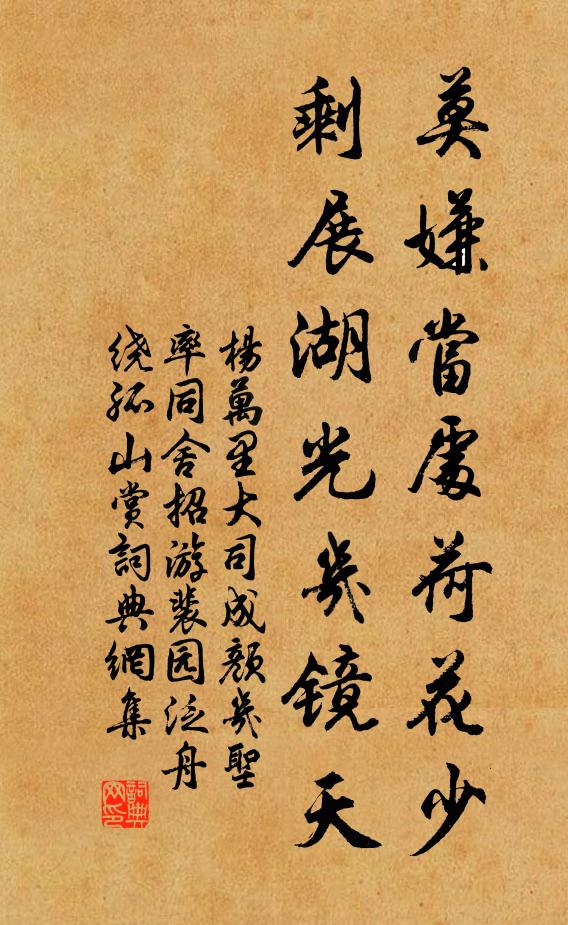 莫嫌當處荷花少
剩展湖光幾鏡天
楊萬里大司成顏幾聖
率同舍招游裴园泛舟
绕孤山賞詞典網集
詞典網印